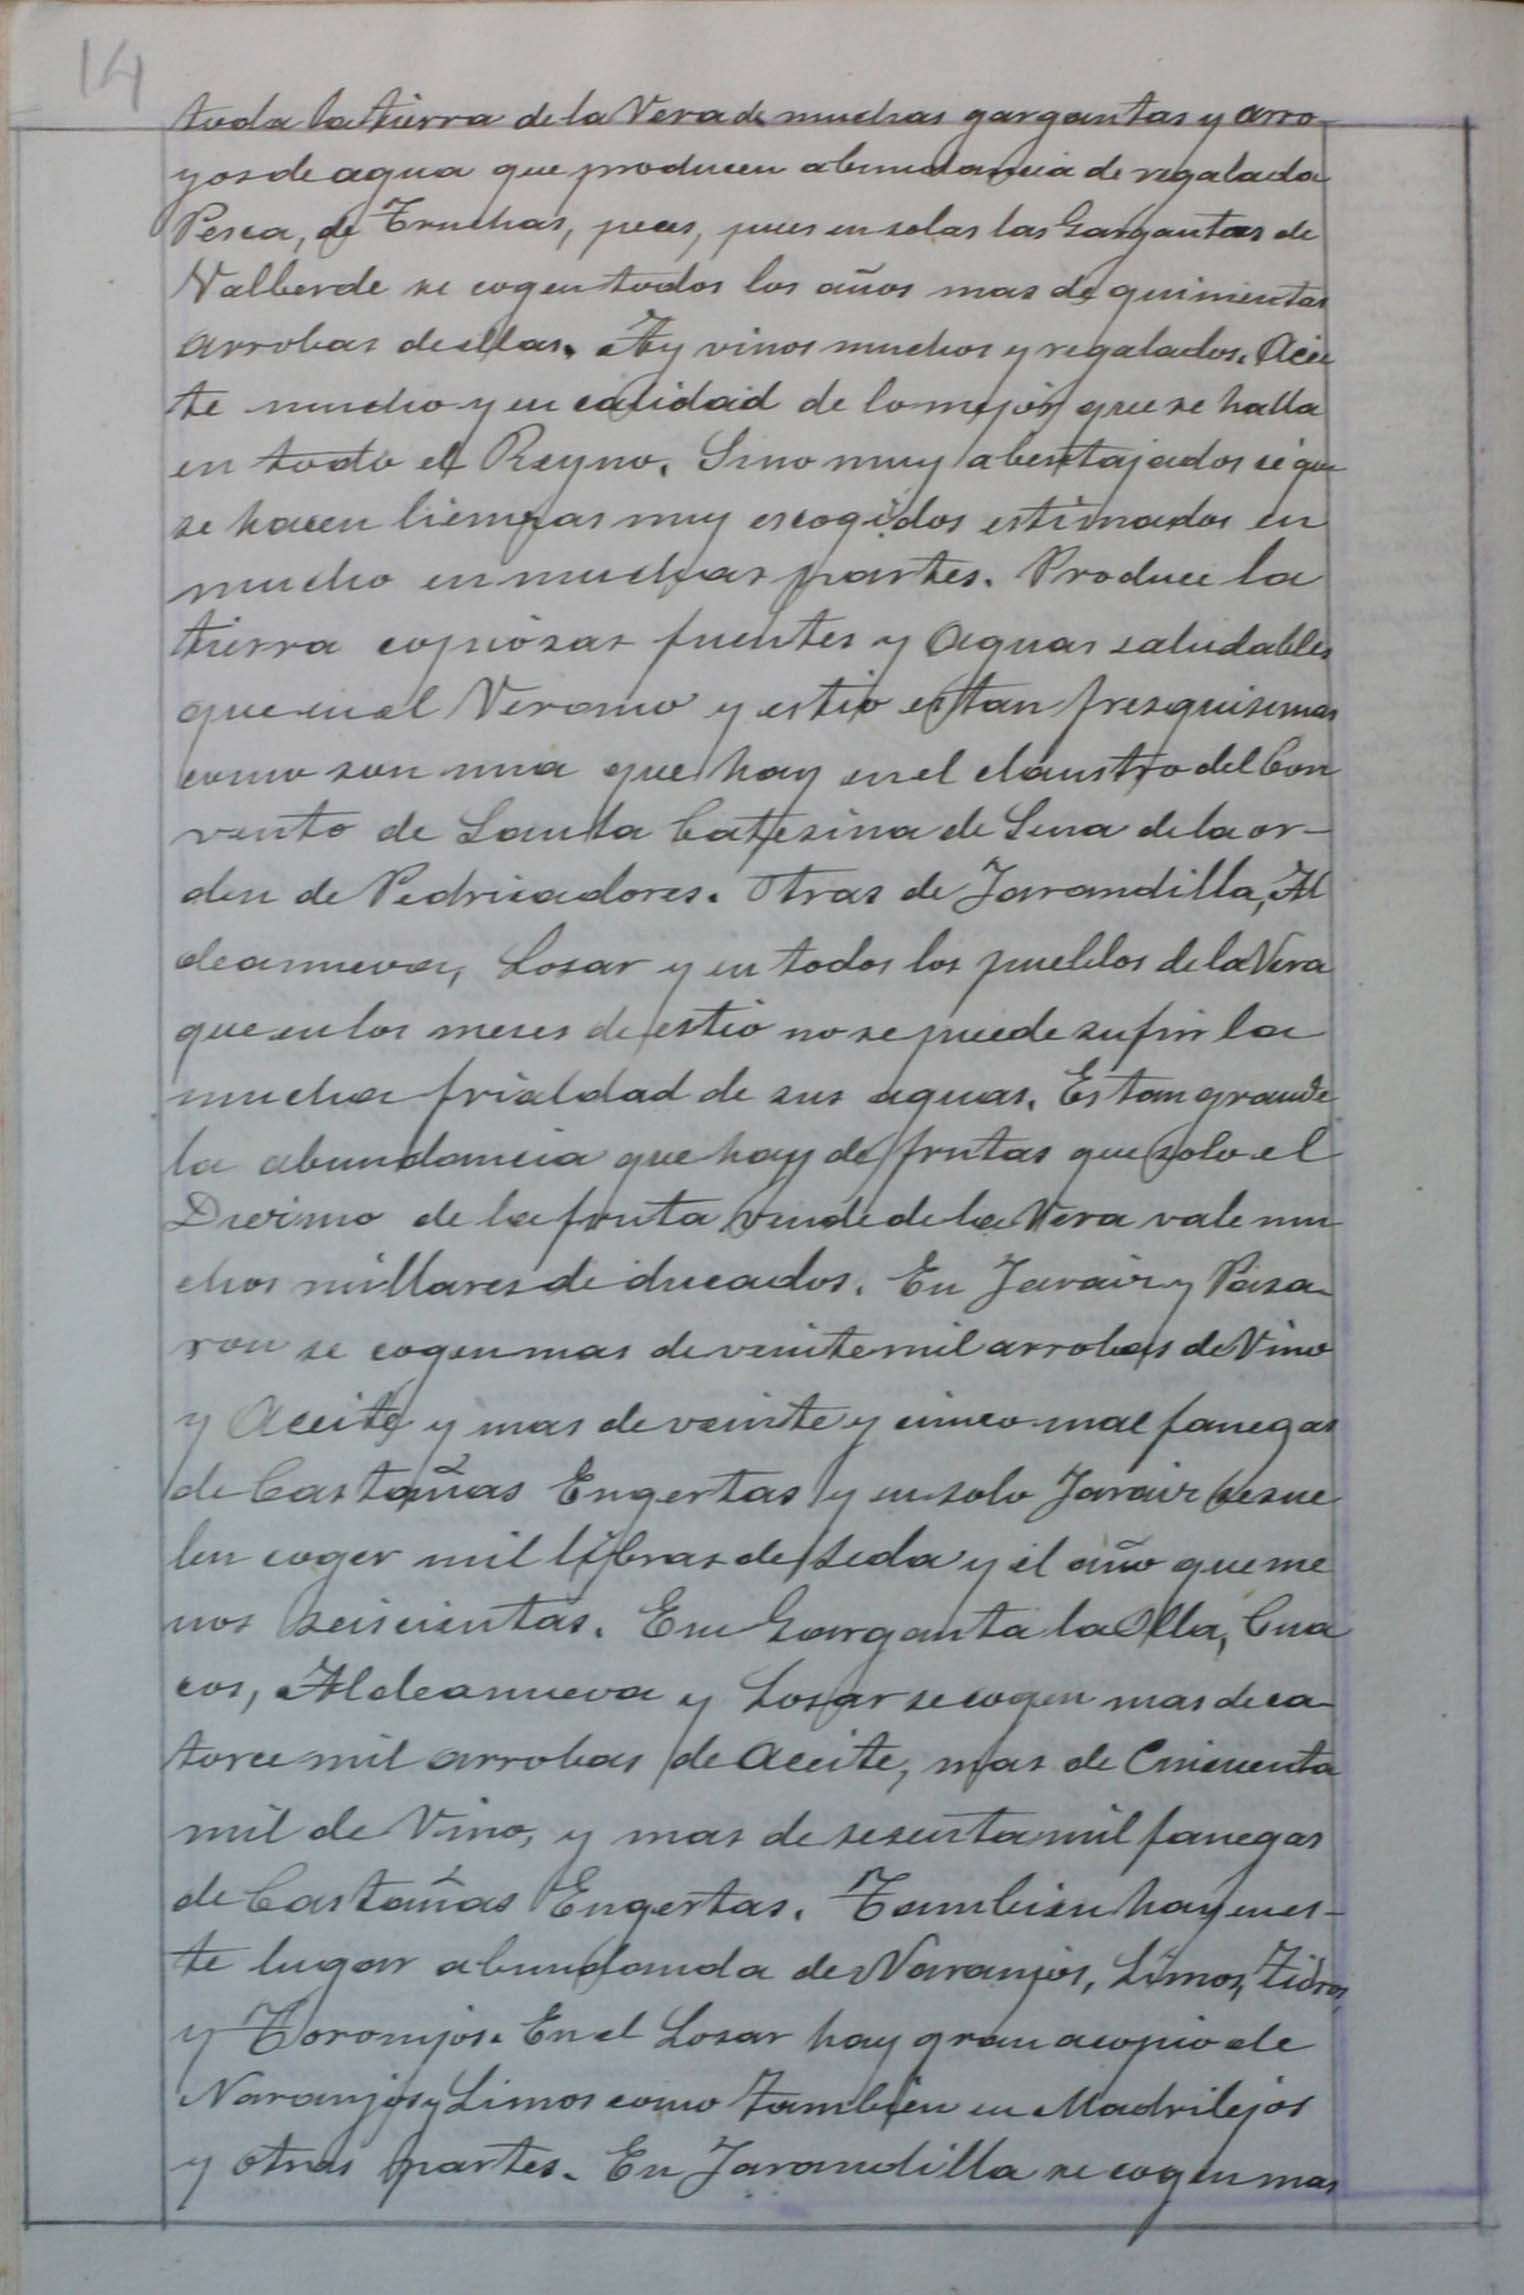 14
toda la tierra de la Vera de muchas gargantas y arro-
yos de agua que producen abundancia de regalada
Pesca, de Truchas, peces, pues en solas las Gargantas de
Valberde se cogen todos los años mas de quinientas
arrobas de ellas. Ay vinos muchos y regalados. Acei
te mucho y en calidad de lo mejor que se halla
en todo el Reyno. Lino muy abentajados
se hacen lienzas muy escogidos estimados en
mucho en muchas partes. Produce la
tierra copiosas fuentes y Aguas saludables
que en el Verano y estio estan fresquisimas
como son una que hay en el claustro del Con
vento de Santa Catesina de Sena de la or-
den de Pedricadores. Otras de Jarandilla, Al
deanueva, Losar y en todos los pueblos de la Vera
que en los meses de estio no se puede sufrir la
mucha frialdad de sus aguas. Es tan grande
la abundancia que hay de frutas que solo el
Diezmo de la fruta vende de la Vera vale mu
chos millares de ducados. En Jaraiz y Pasa-
ron se cogen mas de veinte mil arrobas de Vino
y Aceite y mas de veinte y cinco mil fanegas
de Castañas Engertas y en solo Jaraiz se sue
len coger mil libras de seda y el año que me
nos seiscientas. En Garganta la Olla, Cua
cos, Aldeanueva y Losar se cogen mas de ca-
torce mil arrobas de Aceite, mas de Cincuenta
mil de Vino, y mas de sesenta mil fanegas
de Castañas Engertas. Tambien hay en es-
te lugar abundancia de Naranjos, Limos, Zidros,
y Toronjos. En el Losar hay gran acopio de
Naranjos y Limos como tambien en Madrilejos
y otras partes. En Jarandilla se cogen mas